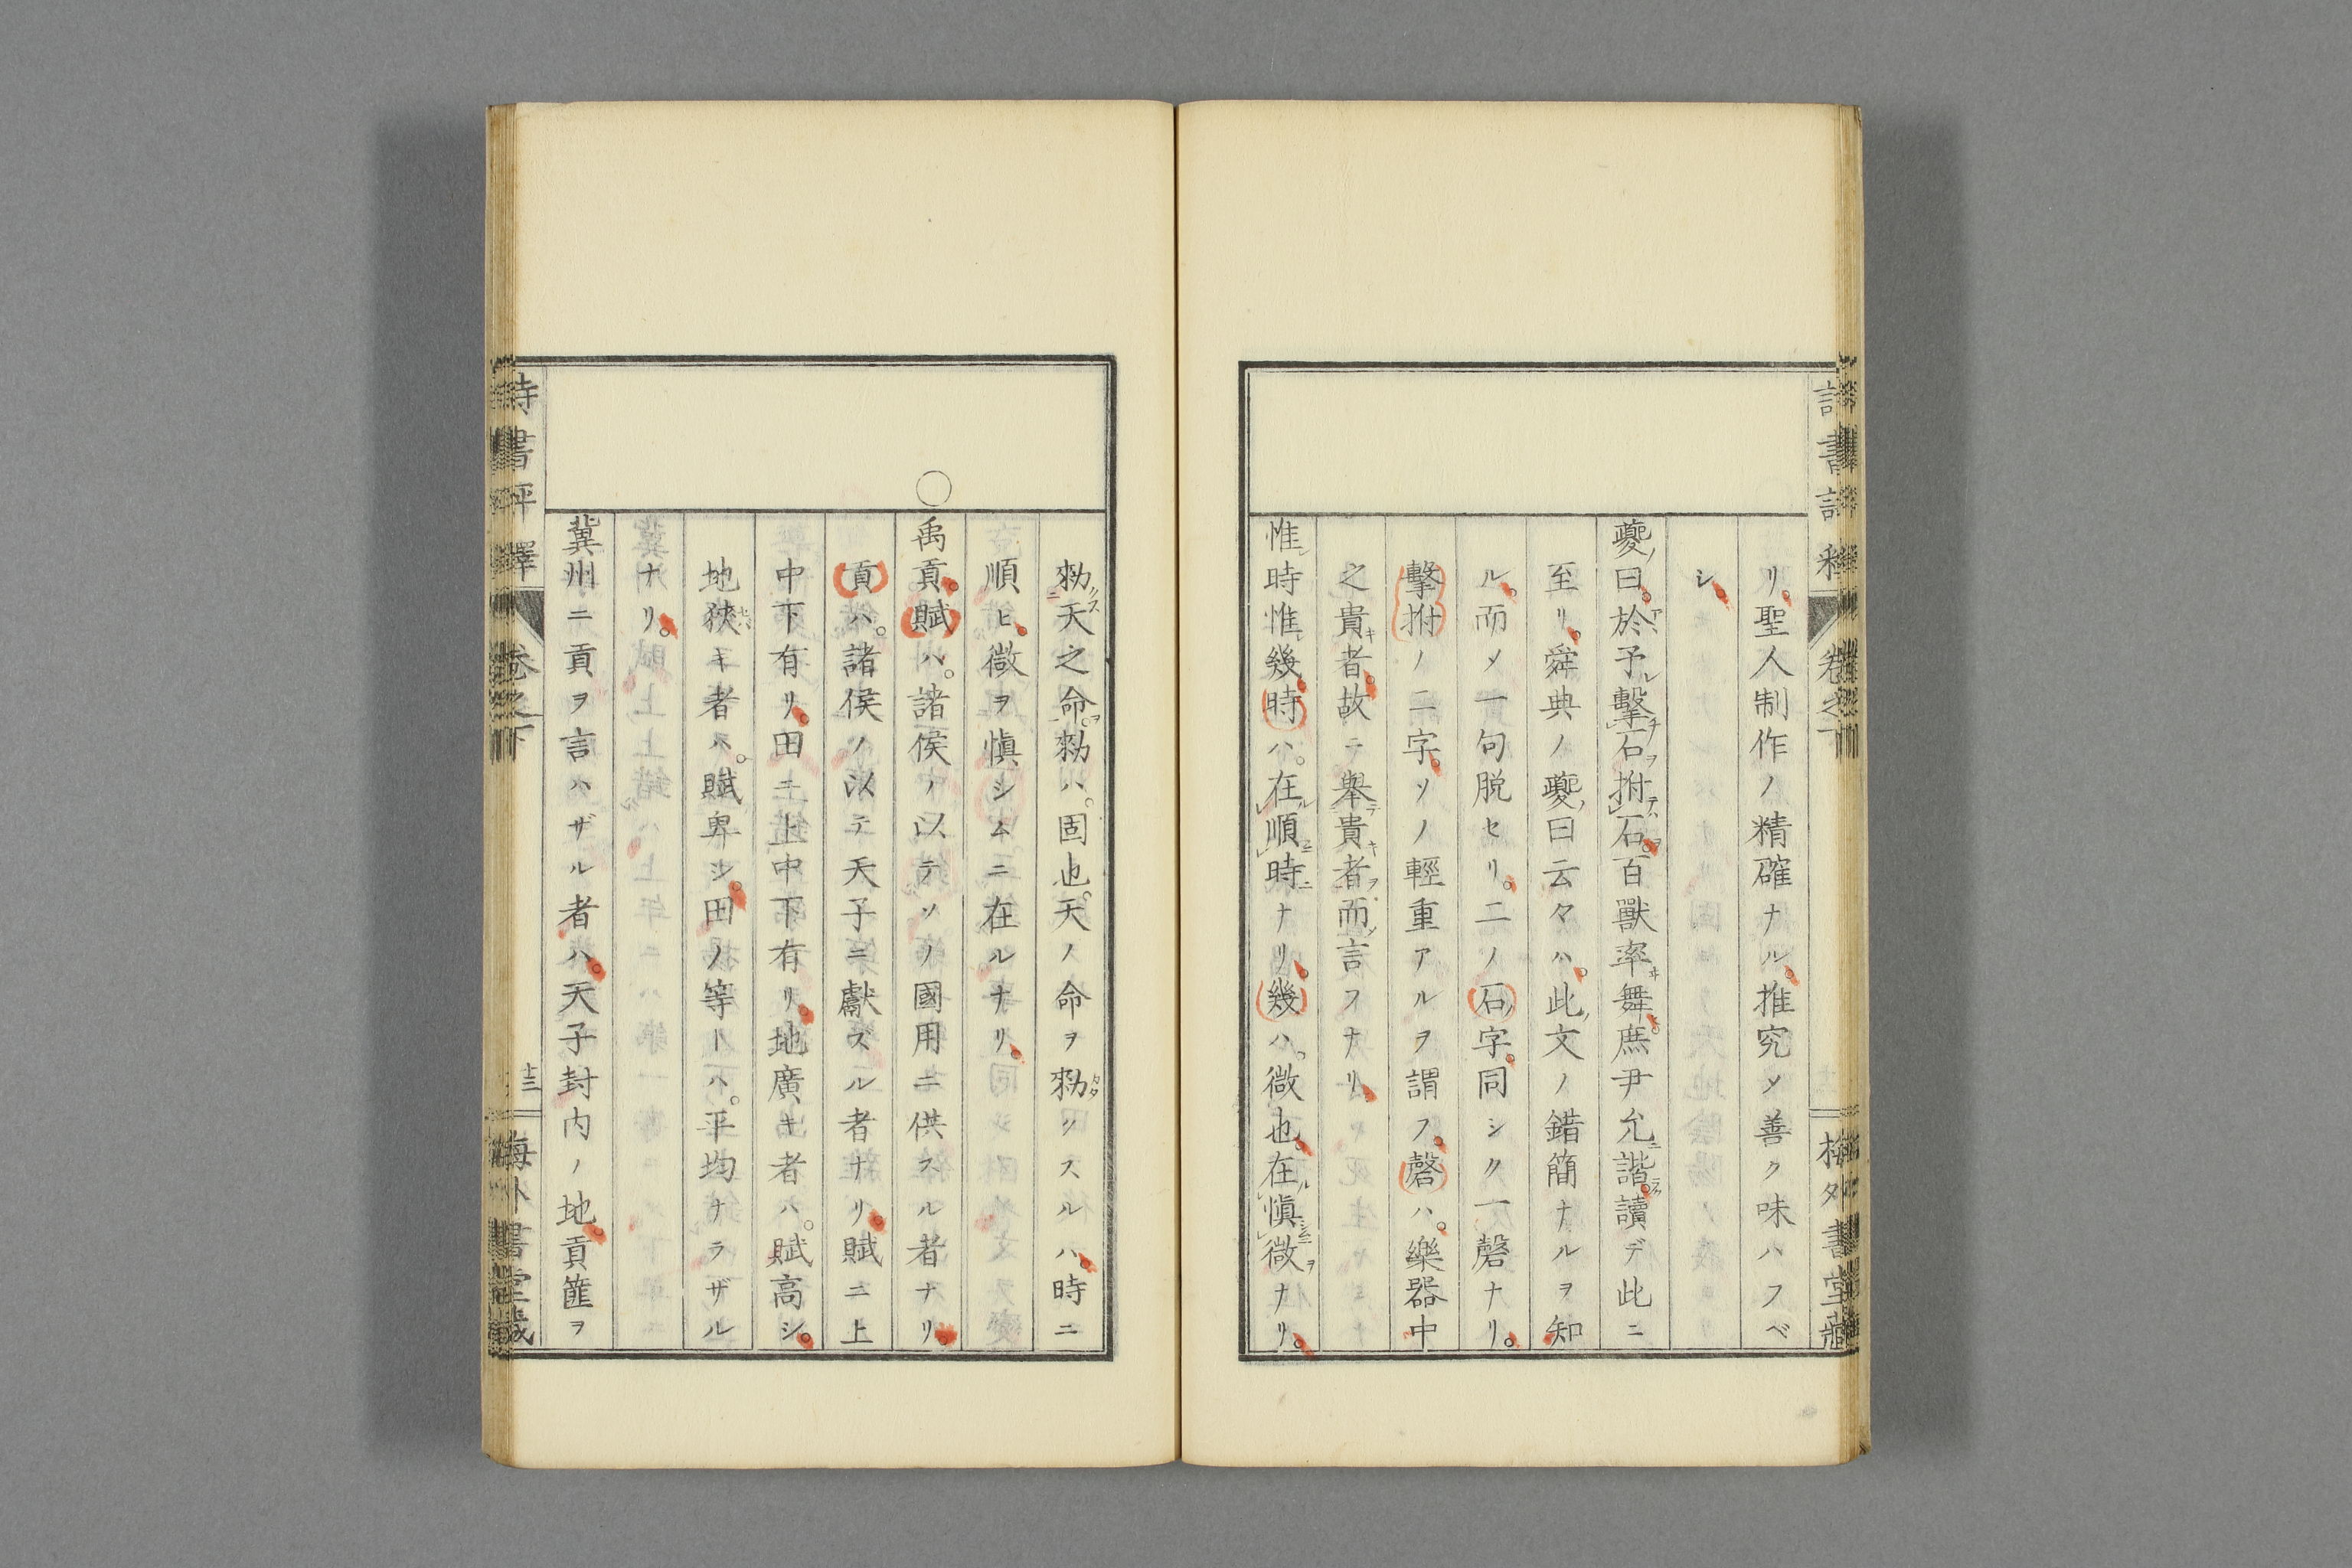 リ。聖人制作ノ精確ナル。推究メ善ク味ハフベ
シ。
夔曰。於予擊石拊石。百獸率舞。庶尹允諧。讀デ此ニ
至リ。舜典ノ夔曰云々ハ。此文ノ錯簡ナルヲ知
ル。而メ一句脱セリ。二ノ石字。同シク一磬ナリ。
擊拊ノ二字。ソノ輕重アルヲ謂フ。磬ハ。樂器中
之貴者。故ニ舉貴者而言フナリ。
惟時惟幾。時ハ。在順時ナリ。幾ハ。微也。在愼微ナリ。
勑天之命。勑ハ。固也。天ノ命ヲ勑ツスルハ。時ニ
順ヒ。微ヲ愼シムニ在ルナリ。
○禹貢。賦ハ。諸侯ノ以テソノ國用ニ供スル者ナリ。
貢ハ。諸侯ノ以テ天子ニ獻ズル者ナリ。賦ニ上
中下有リ。田ニ上中下有リ。地廣キ者ハ。賦高シ。
地狹キ者ハ。賦卑シ。田ノ等トハ。平均ナラザル
ナリ。
冀州ニ貢ヲ言ハザル者ハ。天子封内ノ地。貢篚ヲ
書
卷之下
十三
梅外書堂藏